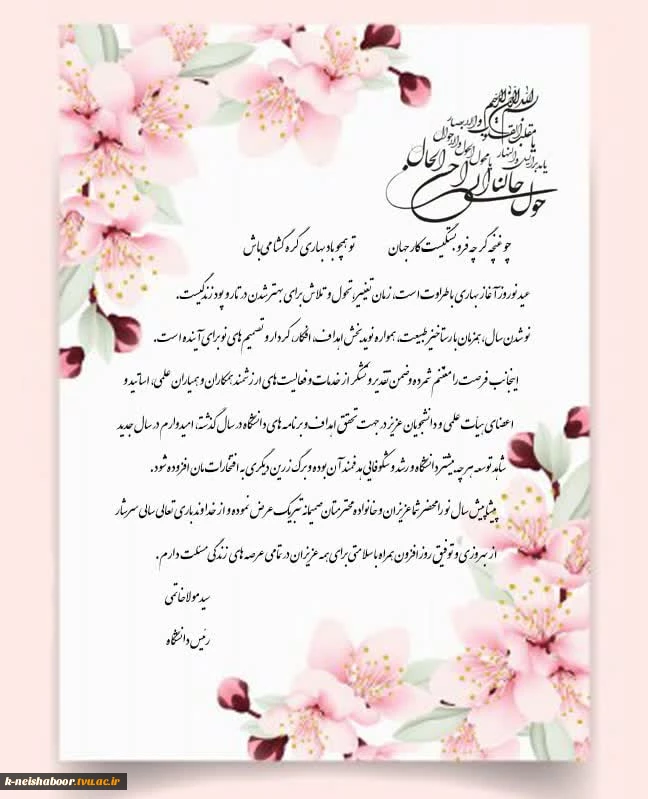 بسم الله الرحمن الرحیم
یا مقلب القلوب والابصار
یا مدبر اللیل والنهار
یا محول الحول والاحوال
حول حالنا الی احسن الحال
چو غنچه گرچه فروبستگیست کار جهان تو همچو باد بهاری گره گشا می باش
عید نوروز آغاز بهاری با طراوت است، زمان تغییر، تحول و تلاش برای بهتر شدن در تار و پود زندگیست.
نو شدن سال، همزمان با رستاخیز طبیعت، همواره نوید بخش اهداف، افکار، کردار و تصمیم های نو برای آینده است.
اینجانب فرصت را مغتنم شمرده و ضمن تقدیر و تشکر از خدمات و فعالیت های ارزشمند همکاران و همیاران علمی، اساتید و
اعضای هیأت علمی و دانشجویان عزیز در جهت تحقق اهداف و برنامه های دانشگاه در سال گذشته، امیدوارم در سال جدید
شاهد توسعه هر چه بیشتر دانشگاه و رشد و شکوفایی هدفمند آن بوده و برگ زرین دیگری به افتخاراتمان افزوده شود.
پیشاپیش سال نو را محضر شما عزیزان و خانواده محترمتان صمیمانه تبریک عرض نموده و از خداوند باری تعالی سالی سرشار
از بهروزی و توفیق روزافزون همراه با سلامتی برای همه عزیزان در تمامی عرصه های زندگی مسئلت دارم.
سید مولا خاتمی
رئیس دانشگاه
k-neishaboor.tvu.ac.ir